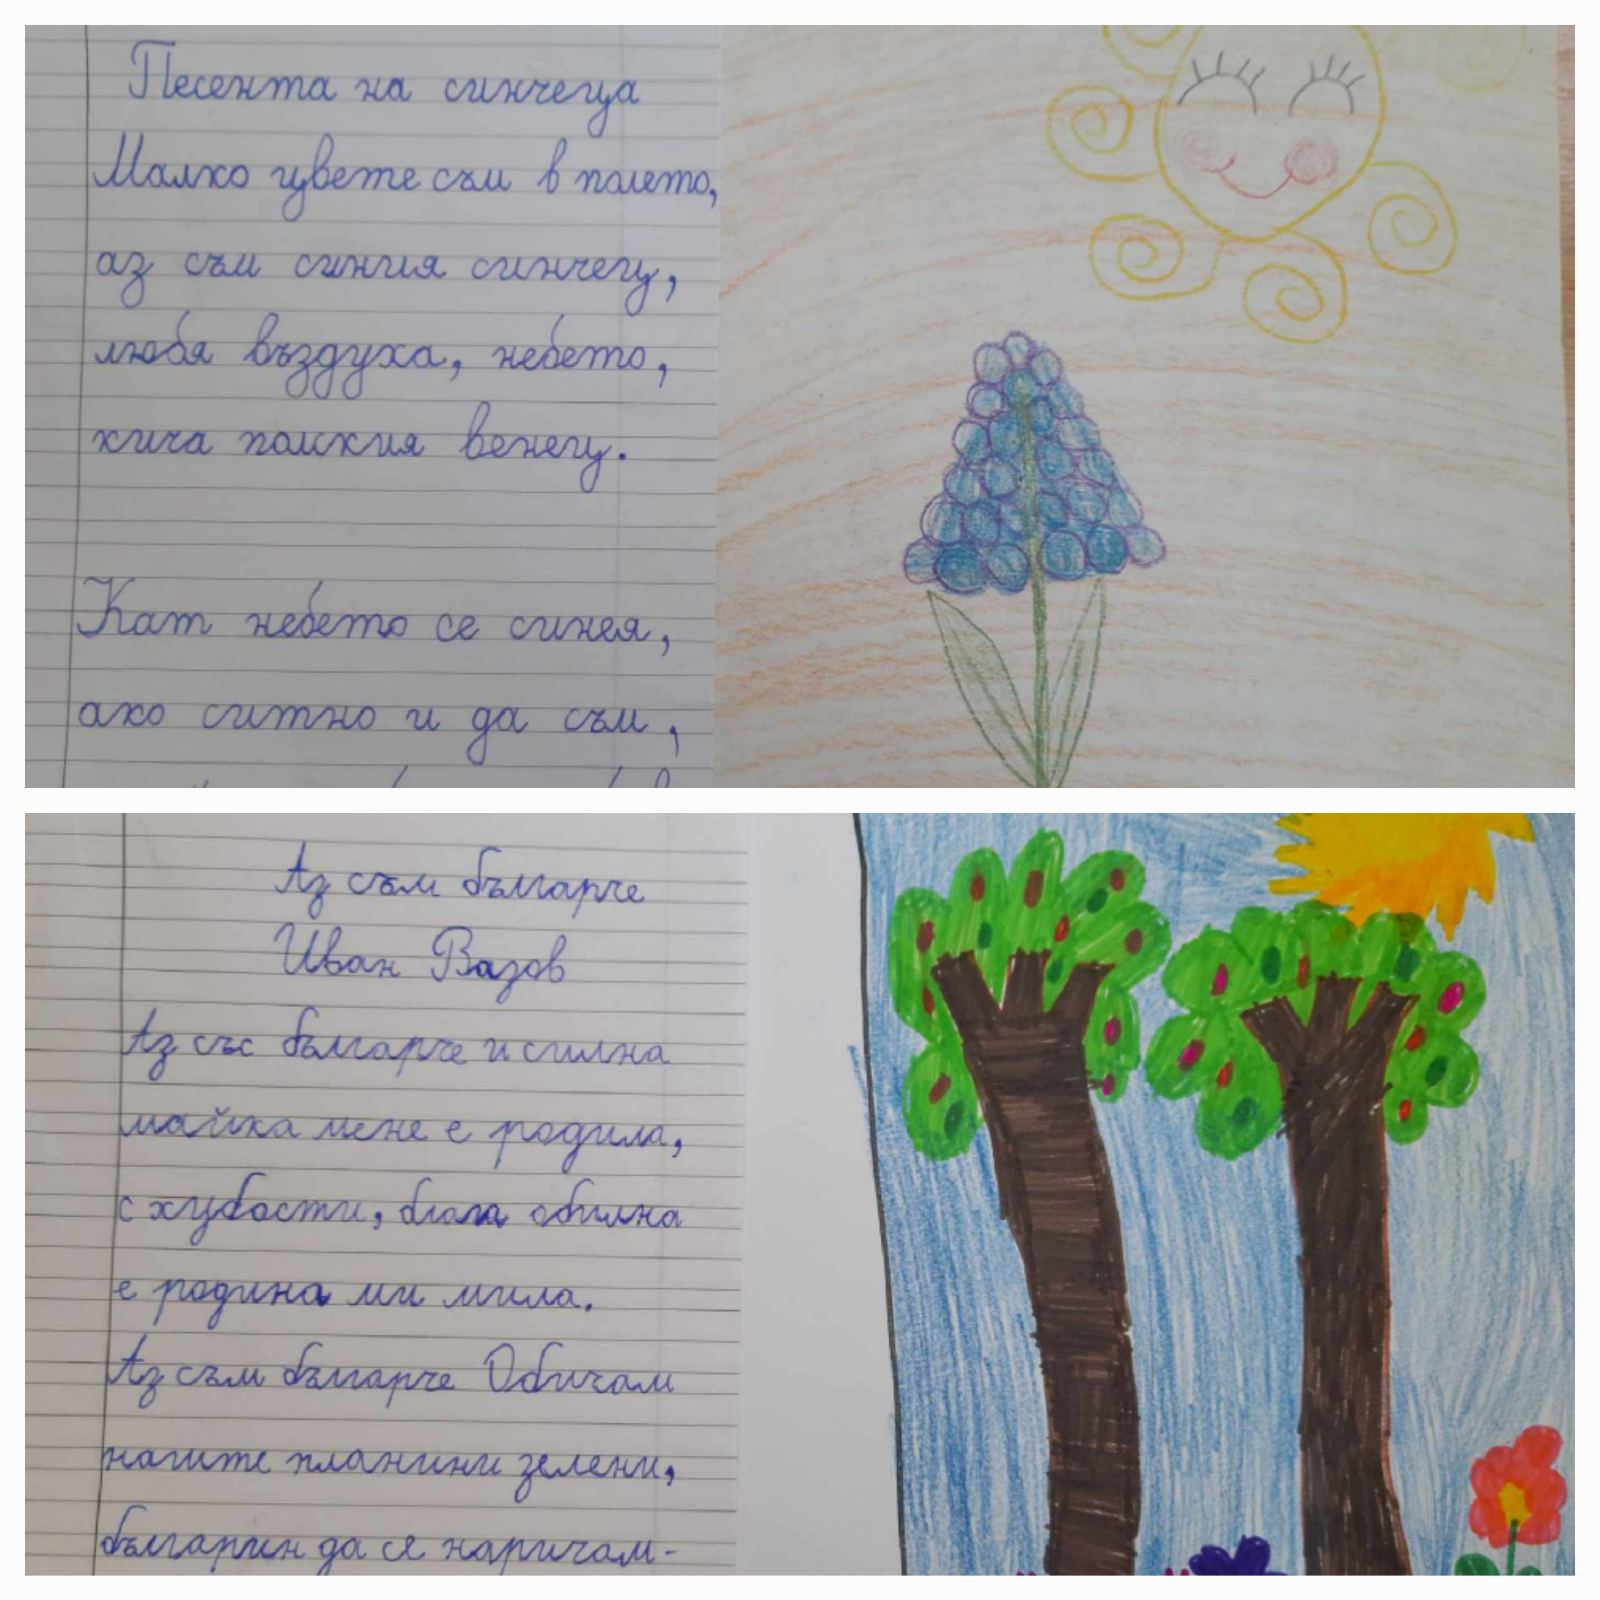 Песента на синчеца
Малко цвете съм в полето,
аз съм синия синчец,
любя въздуха, небето,
кича полския венец.
Кат небето се синея,
ако ситно и да съм,
Аз съм българче
Иван Вазов
Аз със българче и силна
майка мене е родила,
с хубости, блага обилна
е родина ми мила.
Аз съм българче Обичам
нашите планини зелени,
българин да се наричам-